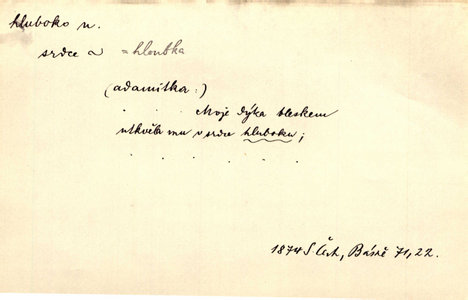 hluboko n.
srdce ~ = hloubka
(adamitka:)
. . Moje dýka bleskem
utkvěla mu v srdce hluboku;
. . . . . .
1874 S Čech, Básně 71, 22.